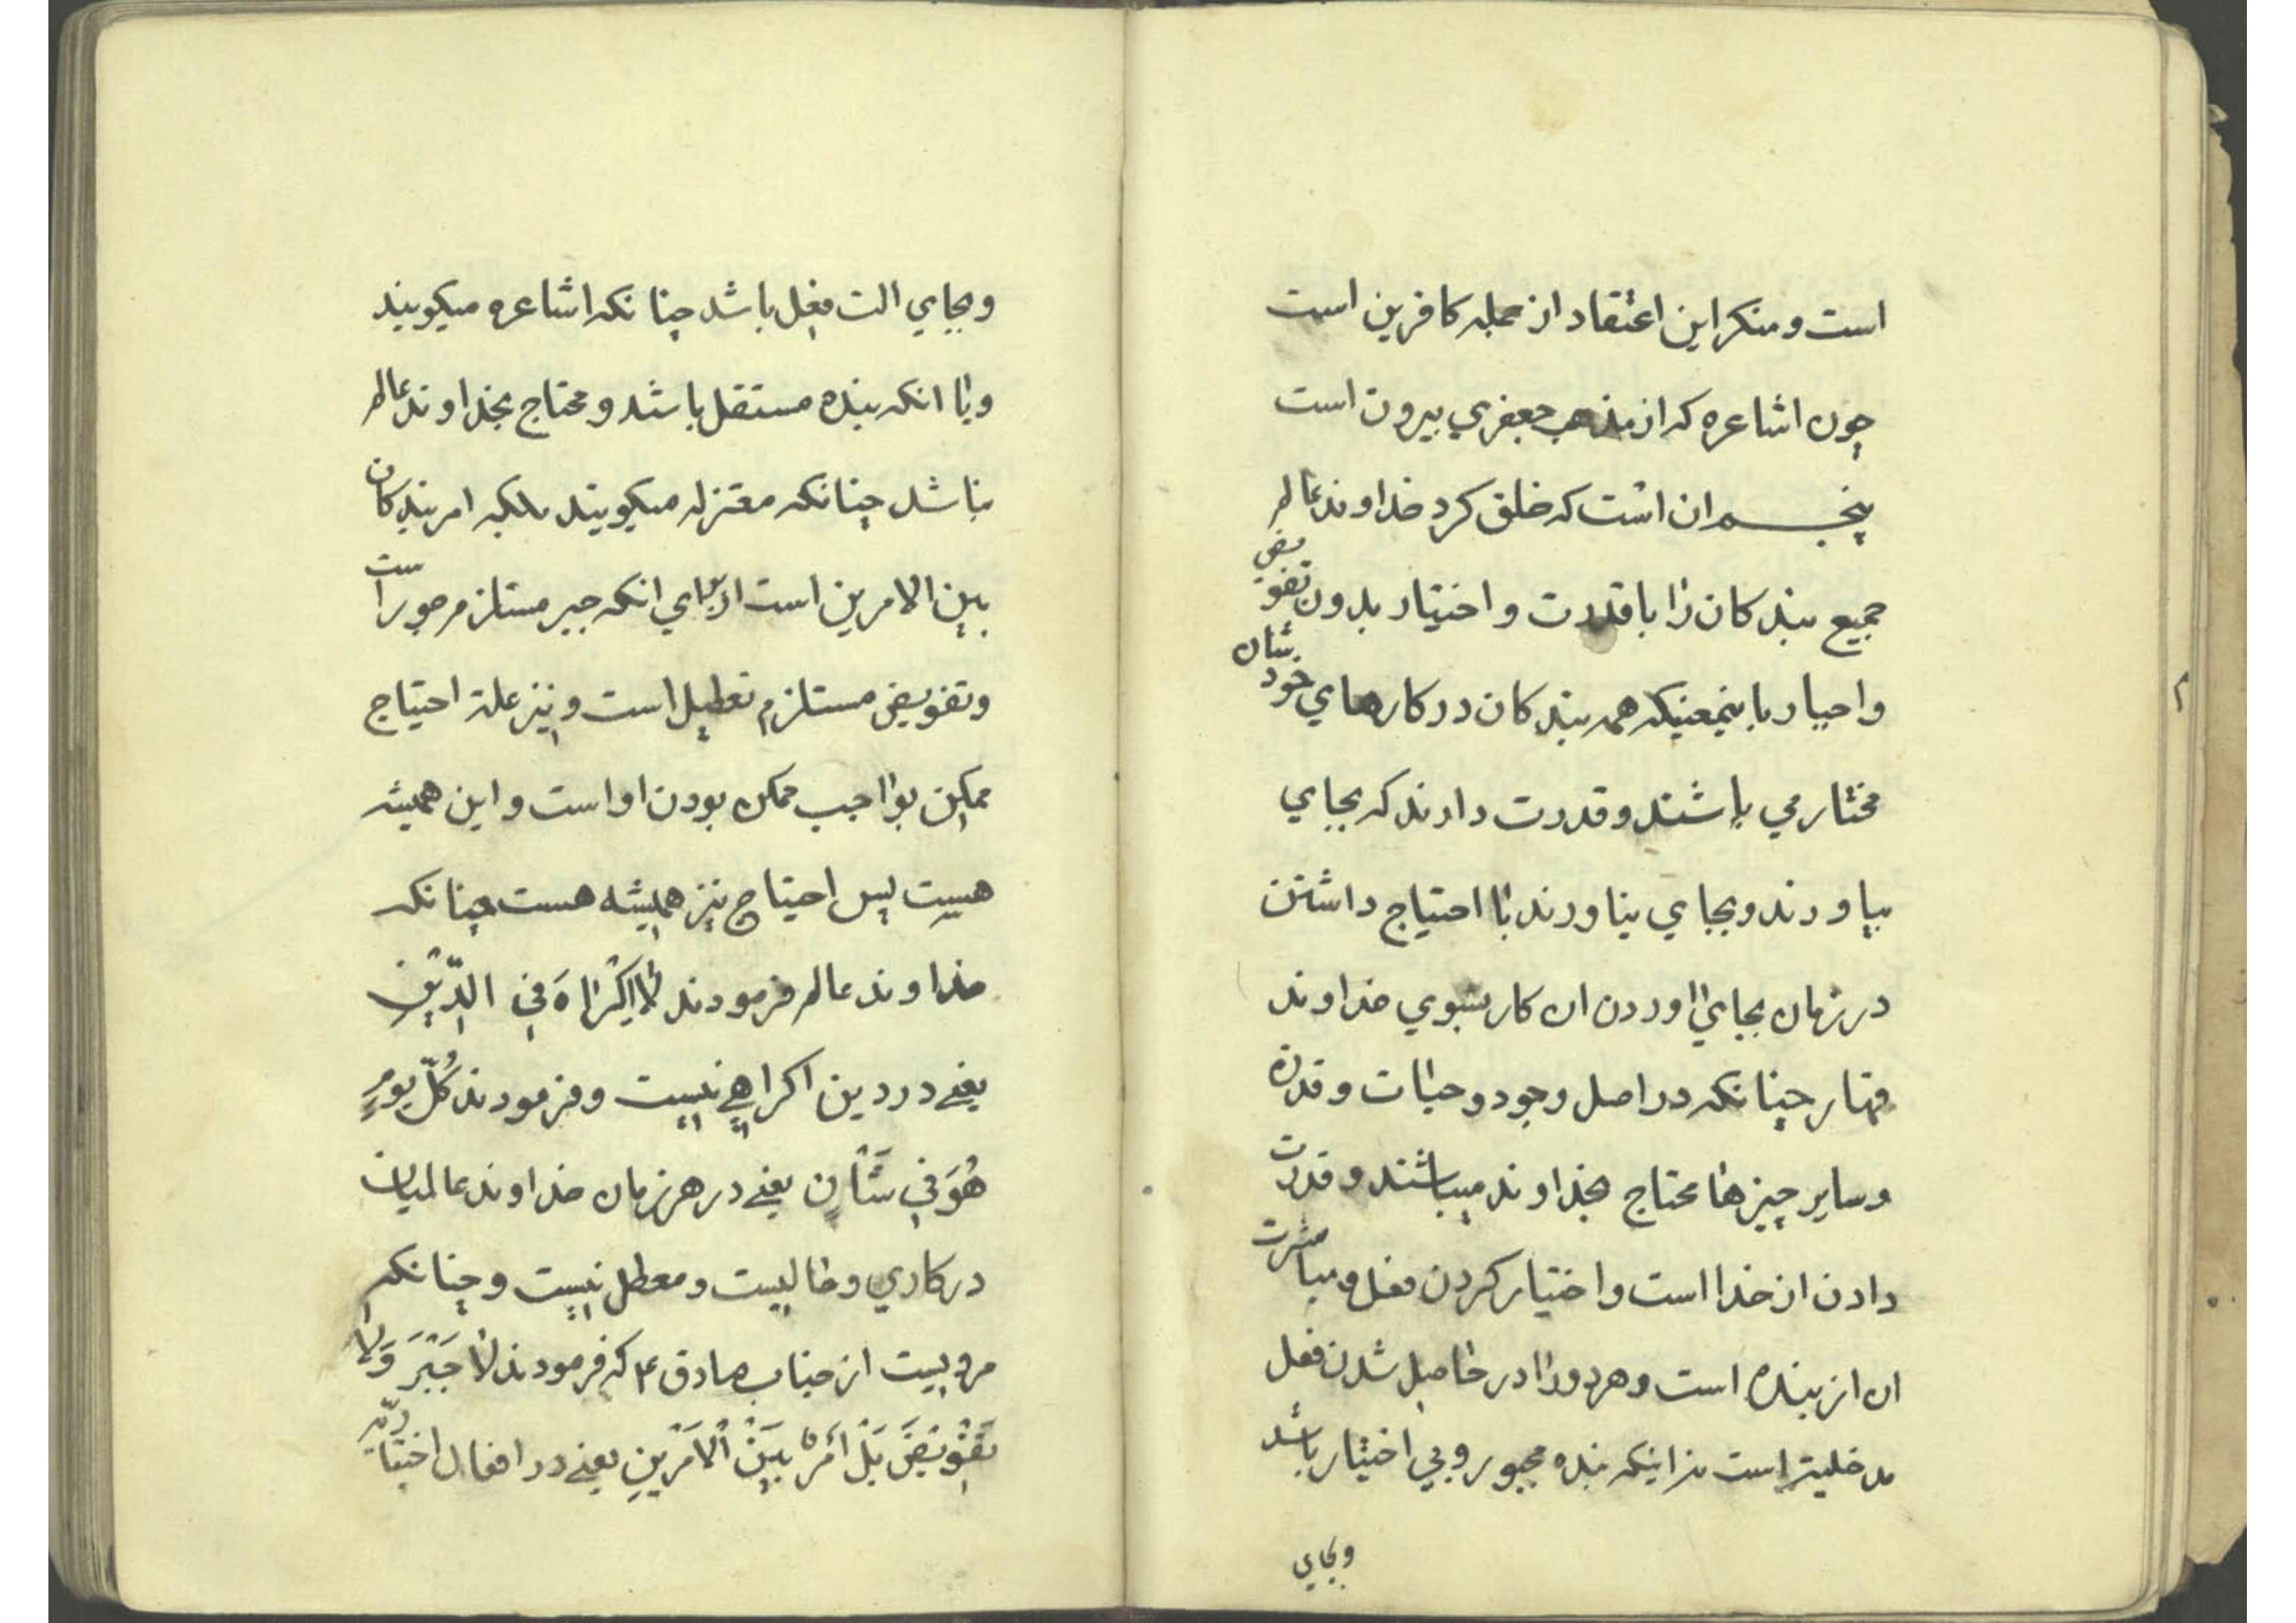 است و منکر این اعتقاد از جمله کافرین است
چون اشاعره که از مذهب جعفري بیرون است
پنجم ان است که خلق کرد خداوند عالم
جمیع بندکان را با قدرت و اختیار بدون تفویض
و اجبار باینمعنیکه همه بندکان در کارهاي خودشان
مختار مي باشند و قدرت دارند که بجاي
بیاورند و بجاي نیاورند با احتیاج داشتن
در زمان بجاي اوردن ان کار بسوي خداوند
قهار چنانکه در اصل وجود و حیات و قدرة
و سایر چیزها محتاج بخداوند میباشند و قدرت
دادن از خدا است و اختیار کردن فعل و مباشرت
ان از بنده است و هر دو را در حاصل شدن فعل
مدخلیة است نه اینکه بنده مجبور و بي اختیار باشد
و بجاي
و بجاي الت فعل باشد چنانکه اشاعره میکویند
و یا انکه بنده مستقل باشد و محتاج بخداوند عالم
نباشد چنانکه معتزله میکویند بلکه امر بندکان
بین الامرین است از براي انکه جبر مستلزم جور است
و تفویض مستلزم تعطیل است و نیز علة احتیاج
ممکن بواجب ممکن بودن او است و این همیشه
هست پس احتیاج نیز همیشه هست چنانکه
خداوند عالم فرمودند لا اِکْراهَ فِي الدّیْنِ
یعني در دین اکراهي نیست و فرمودند کُلّ یومٍ
هُوَ فِي شَأْنٍ یعني در هر زمان خداوند عالمیان
در کاري و خالیست و معطل نیست و چنانکه
مرویست از جناب صادق ع که فرمودند لا جَبْرَ وَلا
تَفْویْضَ بَلْ اَمْرٌ بَیْنَ اْلاَمْرَیْنِ یعني در افعال اختیاریّه